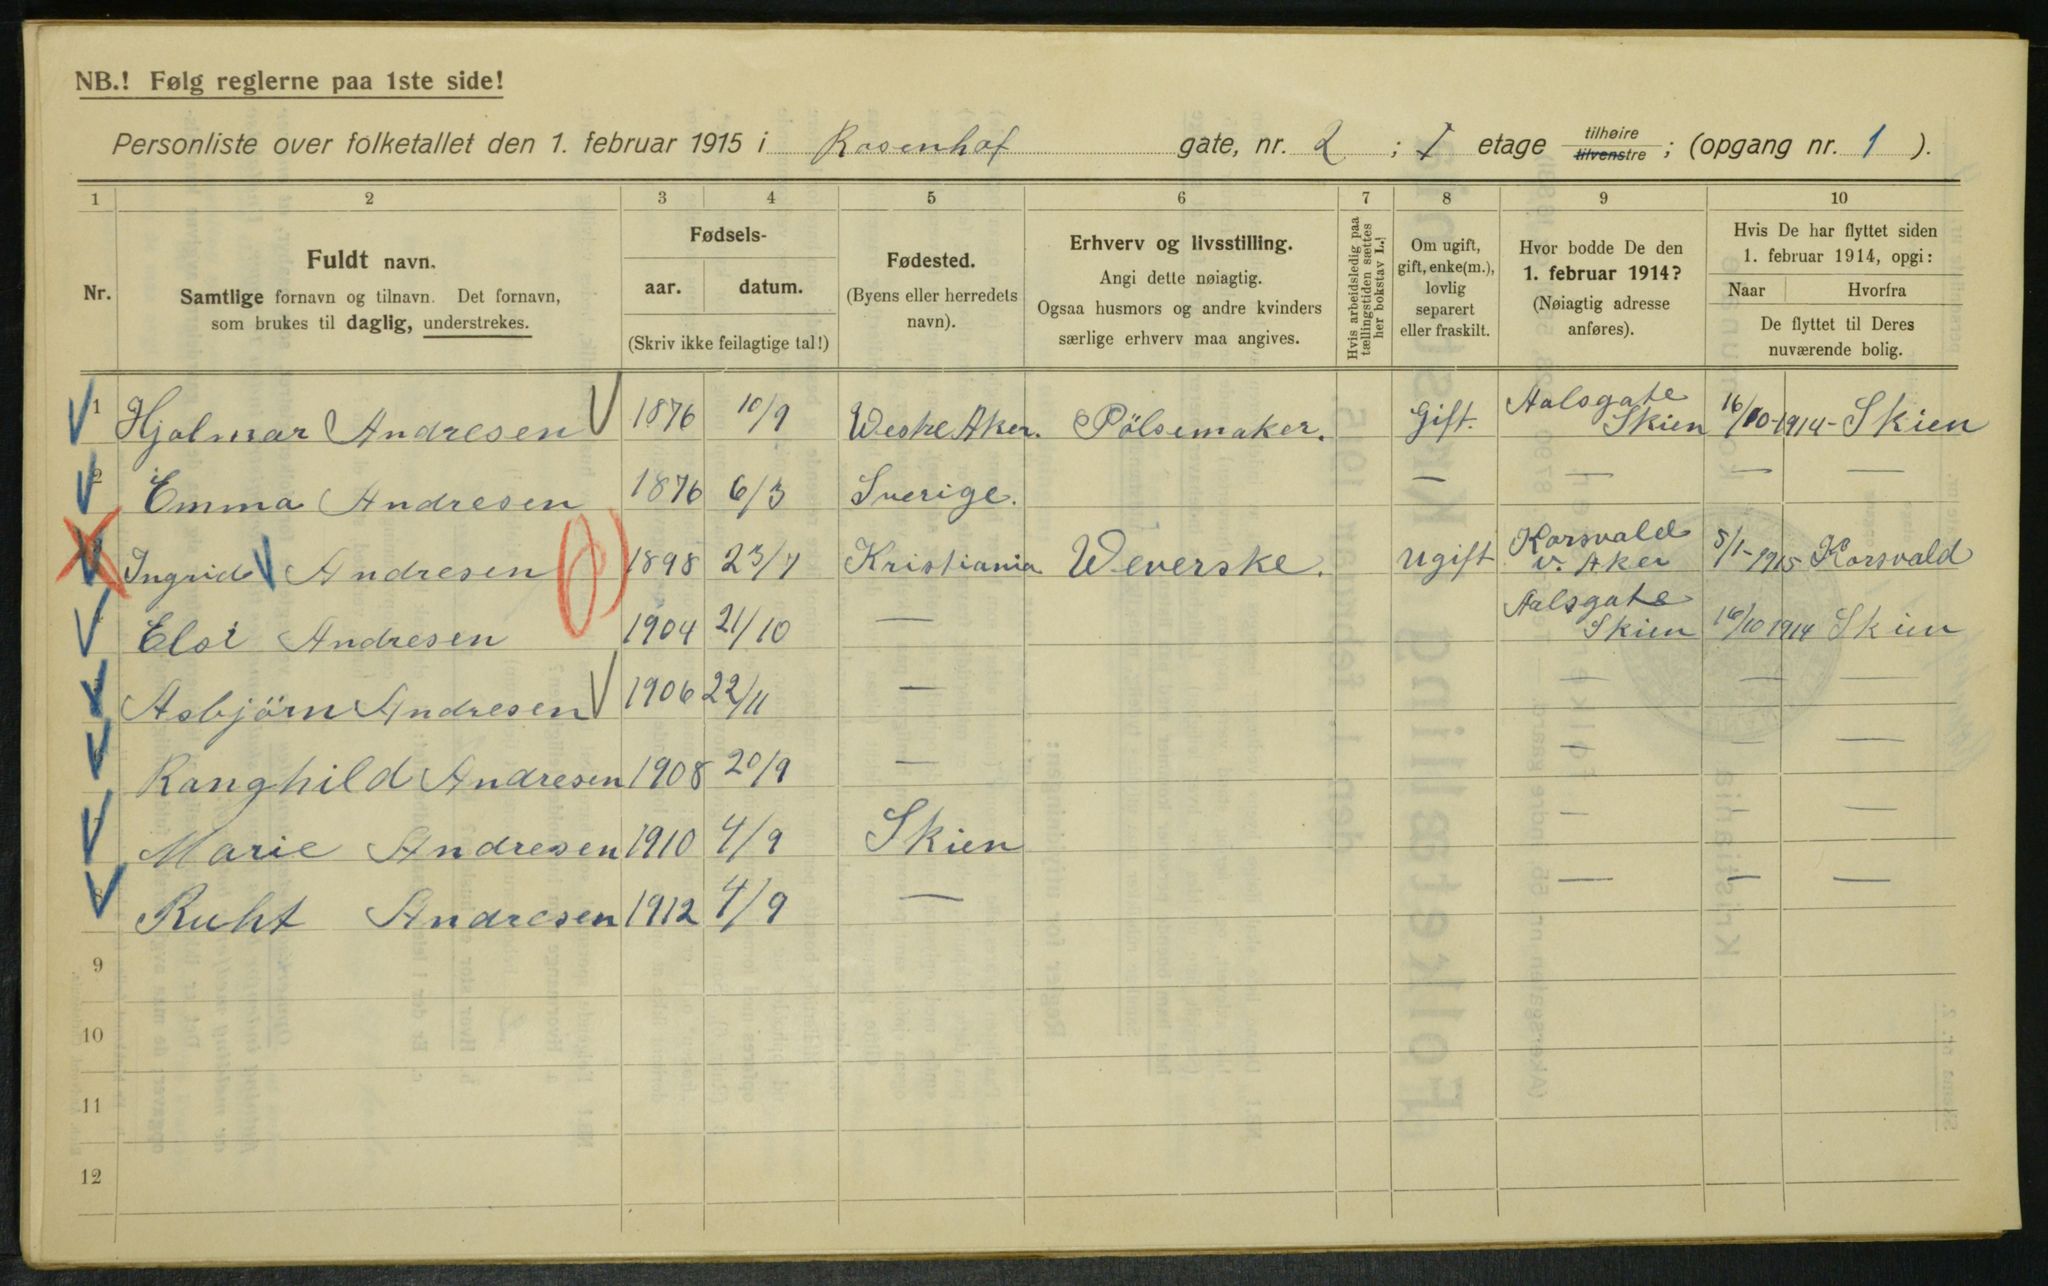 NB.! Følg reglerne paa 1ste side!
Personliste over folketallet den 1. februar 1915 i Rosenhof gate, nr. 2 ; I etage tilhøire tilvenstre ; (opgang nr. 1 ).
1 2 3 4 5 6 7 8 9 10
Nr.
Fuldt navn.
Samtlige fornavn og tilnavn. Det fornavn,
som brukes til daglig, understrekes.
Fødsels-
aar. datum.
(Skriv ikke feilagtige tal!)
Fødested.
(Byens eller herredets
navn).
Erhverv og livsstilling.
Angi dette nøiagtig.
Ogsaa husmors og andre kvinders
særlige erhverv maa angives.
Hvis arbeidsledig paa
tællingstiden sættes
her bokstav L.!
Om ugift,
gift, enke(m.),
lovlig
separert
eller fraskilt.
Hvor bodde De den
1. februar 1914?
(Nøiagtig adresse
anføres).
Hvis De har flyttet siden
1. februar 1914, opgi:
Naar Hvorfra
De flyttet til Deres
nuværende bolig.
1 Hjalmar Andresen 1876 10/9 Westre Aker. Pölsemaker. Gift. Aalsgate Skien 16/10-1914- Skien
2 Emma Andresen 1876 6/3 Sverige. — — — —
Ingrid Andresen 1898 23/7 Kristiania Weverske. Ugift Korsvald v. Aker 5/1-1915 Korsvald
Elsi Andresen 1904 21/10 — Aalsgate Skien 16/10 1914 Skien
Asbjörn Andresen 1906 22/11 — — — —
Ranghild Andresen 1908 20/9 — — — —
Marie Andresen 1910 4/9 Skien — — —
8 Ruht Andresen 1912 4/9 — — — —
9
10
11
12